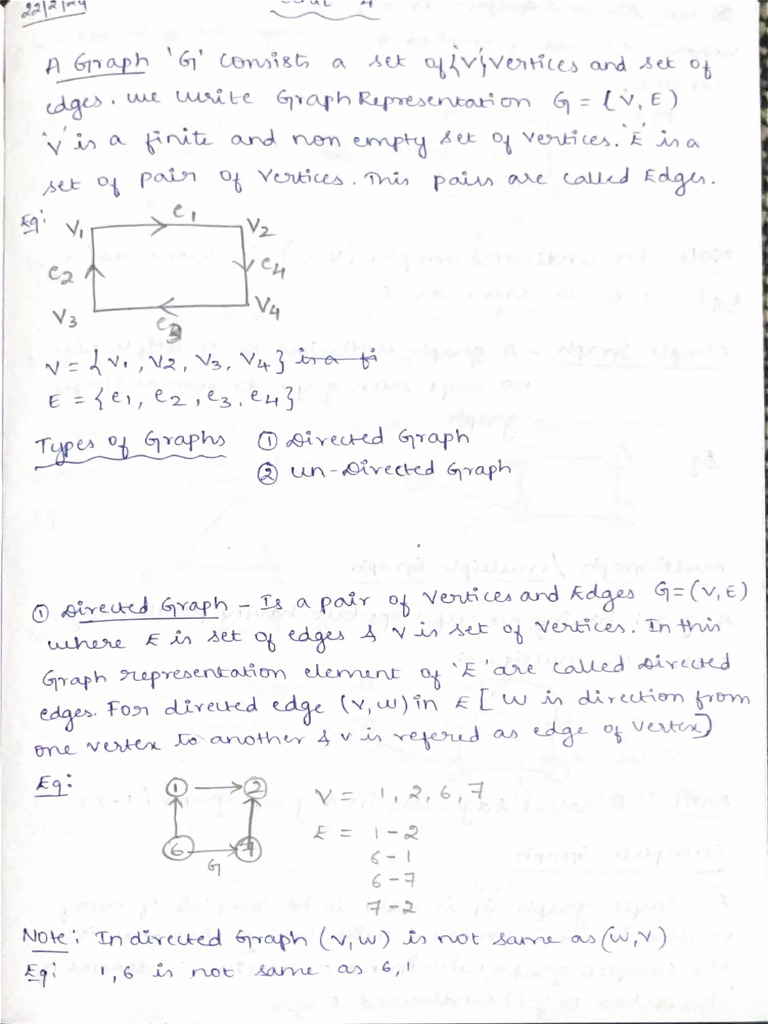 22/2/24
A Graph 'G' consists a set of {V} vertices and set of
edges. we write Graph Representation G = (V, E)
'V' is a finite and non empty set of vertices. 'E' is a
set of pair of vertices. This pairs are called Edges.
Eg:
V1 e1 V2
e2 e4
V3 e3 V4
V = {V1, V2, V3, V4} is a fi
E = {e1, e2, e3, e4}
Types of Graphs ① Directed Graph
② Un-Directed Graph
① Directed Graph - Is a pair of vertices and Edges G=(V,E)
where E is set of edges & V is set of vertices. In this
Graph representation element of 'E' are called Directed
edges. For directed edge (V,W) in E [W is direction from
one vertex to another & V is refered as edge of vertex]
Eg:
1 2
6 7
G
V = 1, 2, 6, 7
E = 1-2
6-1
6-7
7-2
Note: In directed Graph (V,W) is not same as (W,V)
Eg: 1,6 is not same as 6,1